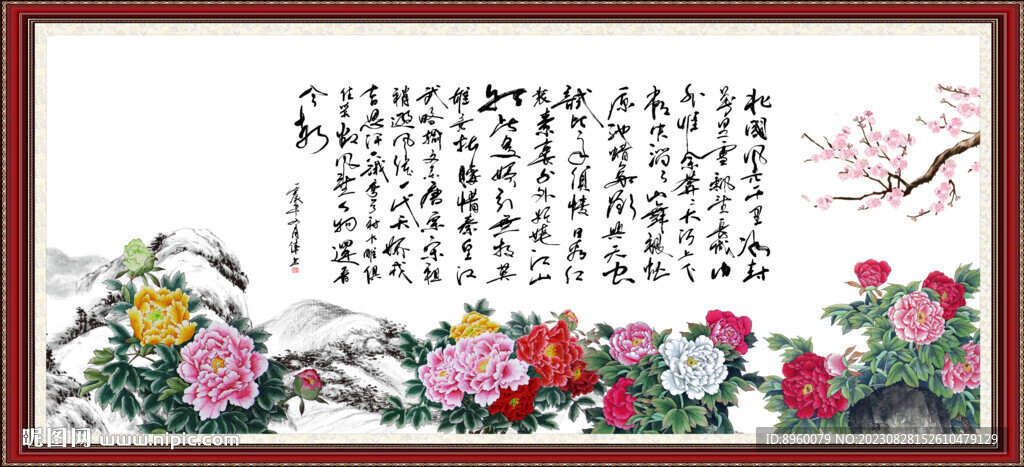 北國風光千里冰封
萬里雪飄望長城内
外惟余莽々大河上下
頓失滔々山舞銀蛇
原馳蜡象欲與天公
試比高須晴日看红
裝素裹分外妖嬈江山
如此多嬌引無數英
雄競折腰惜秦皇漢
武略輸文采唐宗宋祖
稍遜風騷一代天嬌成
吉思汗只識弯弓射大雕俱
往矣數風流人物還看
今朝
昵图网 www.nipic.com
ID:8960079 NO:20230828152610479129